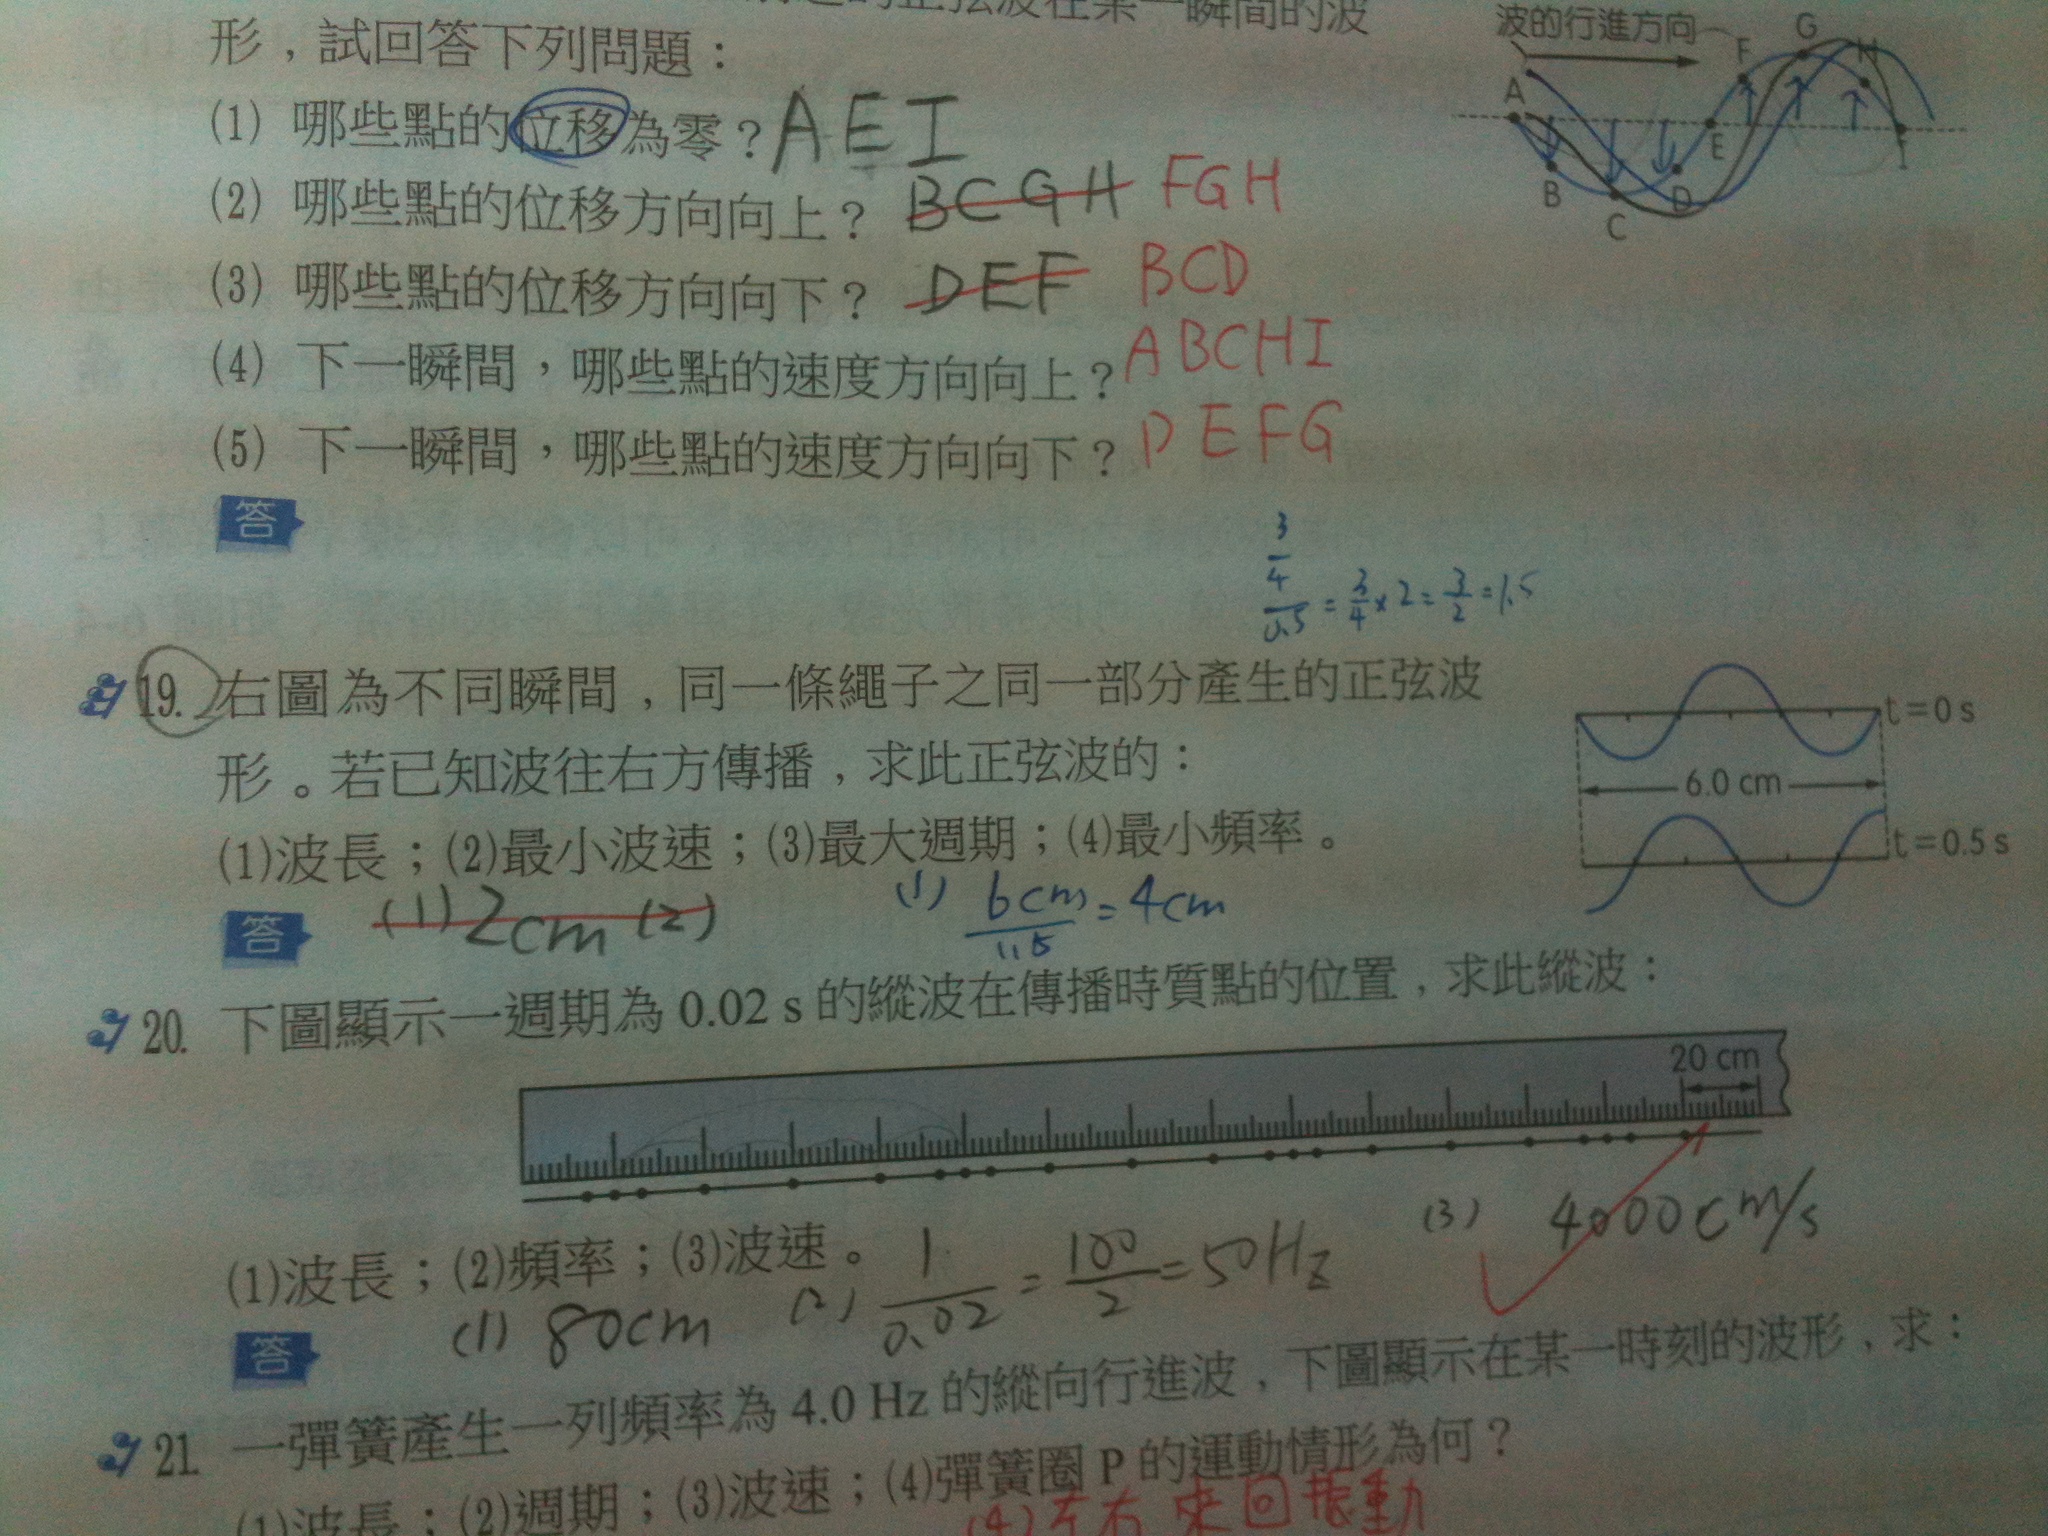 正弦波在某一瞬間的波
形，試回答下列問題：
波的行進方向
A
B
C
D
E
F
G
H
I
(1) 哪些點的位移為零？AEI
(2) 哪些點的位移方向向上？ BCGH FGH
(3) 哪些點的位移方向向下？ DEF BCD
(4) 下一瞬間，哪些點的速度方向向上？ABCHI
(5) 下一瞬間，哪些點的速度方向向下？DEFG
答
3/4/0.5 = 3/4 × 2 = 3/2 = 1.5
19. 右圖為不同瞬間，同一條繩子之同一部分產生的正弦波
形。若已知波往右方傳播，求此正弦波的：
(1)波長；(2)最小波速；(3)最大週期；(4)最小頻率。
t＝0 s
6.0 cm
t＝0.5 s
答
(1) 2cm (2)
(1) 6cm/1.5 = 4cm
20. 下圖顯示一週期為 0.02 s 的縱波在傳播時質點的位置，求此縱波：
20 cm
(1)波長；(2)頻率；(3)波速。
答
(1) 80cm
(2) 1/0.02 = 100/2 = 50Hz
(3) 4000cm/s
21. 一彈簧產生一列頻率為 4.0 Hz 的縱向行進波，下圖顯示在某一時刻的波形，求：
(1)波長；(2)週期；(3)波速；(4)彈簧圈 P 的運動情形為何？
(4)左右來回振動